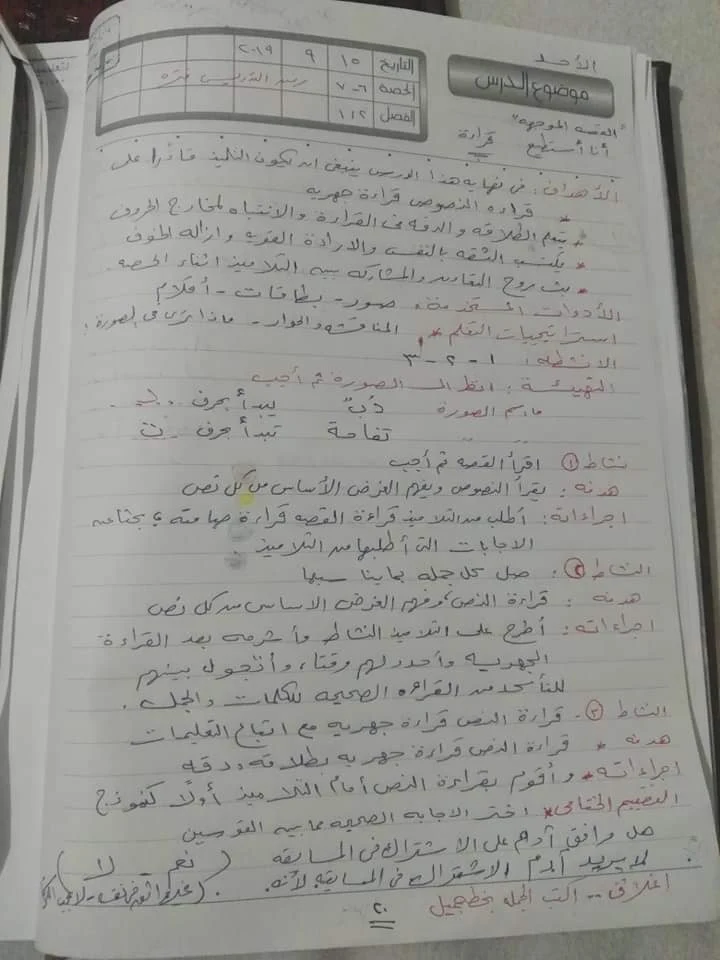 الأحد
موضوع الدرس
التاريخ ١٥ ٩ ٢٠١٩
الحصة ٦-٧
الفصل ١/٢
"القصه الموجهه"
أنا أستطيع قراءة
الأهداف: فى نهاية هذا الدرس ينبغى ان يكون التلميذ قادرا على
* قراءه النصوص قراءة جهريه
* يتعلم الطلاقه والدقه فى القراءة والانتباه لمخارج الحروف
* يكتسب الثقه بالنفس والارادة القويه وازاله الخوف
* بث روح التعاون والمشاركه بين التلاميذ اثناء الحصه
الأدوات المستخدمة: صور - بطاقات - أقلام
استراتيجيات التعلم * المناقشه والحوار - ماذا ترى فى الصورة؟
الانشطه: ١ - ٢ - ٣
التهيئة: انظر الى الصورة ثم أجب
ما اسم الصورة دُبٌ يبدأ بحرف ..د..
" " تفاحة تبدأ بحرف ..ت
نشاط ١ اقرأ القصه ثم أجب
هدفه: يقرأ النصوص ويفهم الغرض الأساس من كل نص
اجراءاته: أطلب من التلاميذ قراءة القصه قراءة صامته
الاجابات التى أطلبها من التلاميذ.
النشاط ٢: صل كل جمله بما يناسبها
هدفه: قراءة النص، وفهم الغرض الاساس من كل نص
اجراءاته: أطرح على التلاميذ النشاط وأشرحه بعد القراءة
الجهريه وأحدد لهم وقتا، وأتجول بينهم
للتأكد من القراءه الصحيحه للكلمات والجمل.
النشاط ٣. قراءة النص قراءة جهريه مع اتباع التعليمات
هدفه * قراءة النص قراءة جهريه بطلاقه ودقه
اجراءاته * وأقوم بقراءة النص أمام التلاميذ أولًا كنموذج
التقييم الختامى * اختر الاجابه الصحيحه مما بين القوسين
هل وافق آدم على الاشتراك فى المسابقه (نعم - لا)
لا يريد آدم الاشتراك فى المسابقه لأنه. (
اغلاق -- اكتب الجمله بخط جميل
٢٠